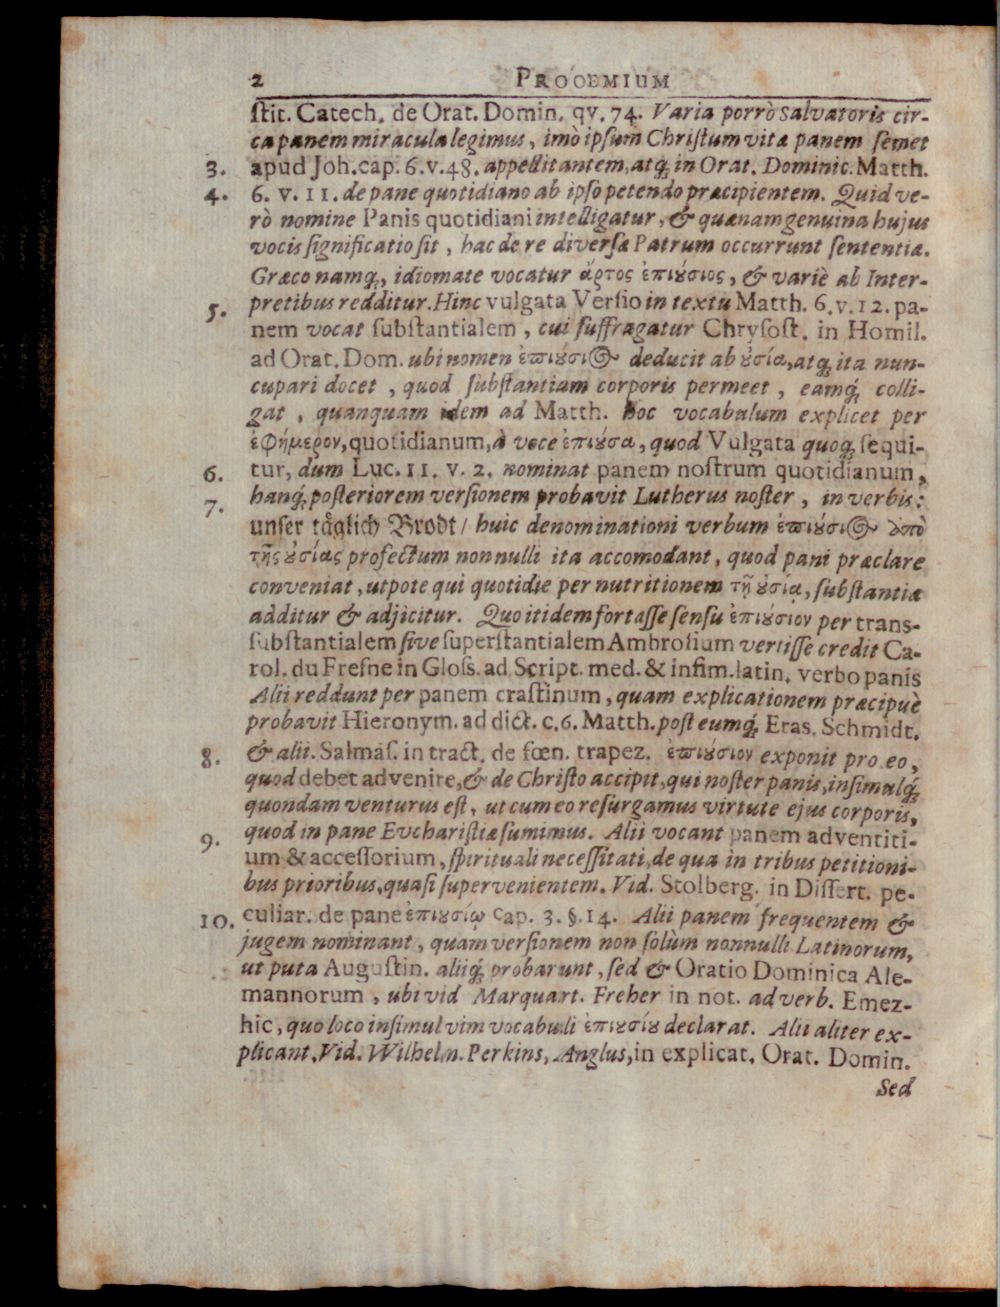 2 PROOEMIUM
ſtit. Catech. de Orat. Domin. qv. 74. Varia porrò Salvatoris cir-
ca panem miracula legimus, imò ipſum Chriſtum vitæ panem ſemet
3. apud Joh. cap. 6. v. 48. appellitantem, atq; in Orat. Dominic. Matth.
4. 6. v. 11. de pane quotidiano ab ipſo petendo præcipientem. Quid ve-
rò nomine Panis quotidiani intelligatur, & quænam genuina hujus
vocis ſignificatio ſit, hac de re diverſæ Patrum occurrunt ſententiæ.
Græco namq;, idiomate vocatur ἄρτος ἐπιούσιος, & variè ab Inter-
5. pretibus redditur. Hinc vulgata Verſio in textu Matth. 6. v. 12. pa-
nem vocat ſubſtantialem, cui ſuffragatur Chryſoſt. in Homil.
ad Orat. Dom. ubi nomen ἐπιούσιος deducit ab ουσία, atq; ita nun-
cupari docet, quod ſubſtantiam corporis permeet, eamq; colli-
gat, quanquam idem ad Matth. hoc vocabulum explicet per
ἐφήμερον, quotidianum, à voce ἐπιούσα, quod Vulgata quoq; ſequi-
6. tur, dum Luc. 11. v. 2. nominat panem noſtrum quotidianum,
7. hanq; poſteriorem verſionem probavit Lutherus noſter, in verbis:
unſer täglich Brodt/ huic denominationi verbum ἐπιούσιος ἀπὸ
τῆς ουσίας profectum nonnulli ita accomodant, quod pani præclare
conveniat, utpote qui quotidie per nutritionem τῇ ουσίᾳ, ſubſtantiæ
additur & adjicitur. Quo itidem fortaſſe ſenſu ἐπιούσιον per trans-
ſubſtantialem ſive ſuperſtantialem Ambroſium vertiſſe credit Ca-
rol. du Freſne in Gloſs. ad Script. med. & infim. latin. verbo panis
Alii reddunt per panem craſtinum, quam explicationem præcipuè
probavit Hieronym. ad dict. c. 6. Matth. poſt eumq; Eras. Schmidt.
8. & alii. Salmaſ. in tract. de fœn. trapez. ἐπιούσιον exponit pro eo,
quod debet advenire, & de Chriſto accipit, qui noſter panis, inſimulq;
quondam venturus eſt, ut cum eo reſurgamus virtute ejus corporis,
9. quod in pane Euchariſtiæ ſumimus. Alii vocant panem adventiti-
um & acceſſorium, ſpirituali neceſſitati, de qua in tribus petitioni-
bus prioribus, quaſi ſupervenientem. Vid. Stolberg. in Diſſert. pe-
10. culiar. de pane ἐπιουσίῳ cap. 3. §. 14. Alii panem frequentem &
jugem nominant, quam verſionem non ſolùm nonnulli Latinorum,
ut puta Auguſtin. aliiq; probarunt, ſed & Oratio Dominica Ale-
mannorum, ubi vid Marquart. Freher in not. ad verb. Emez-
hic, quo loco inſimul vim vocabuli ἐπιουσίου declarat. Alii aliter ex-
plicant, Vid. Wilheln. Perkins, Anglus, in explicat. Orat. Domin.
Sed